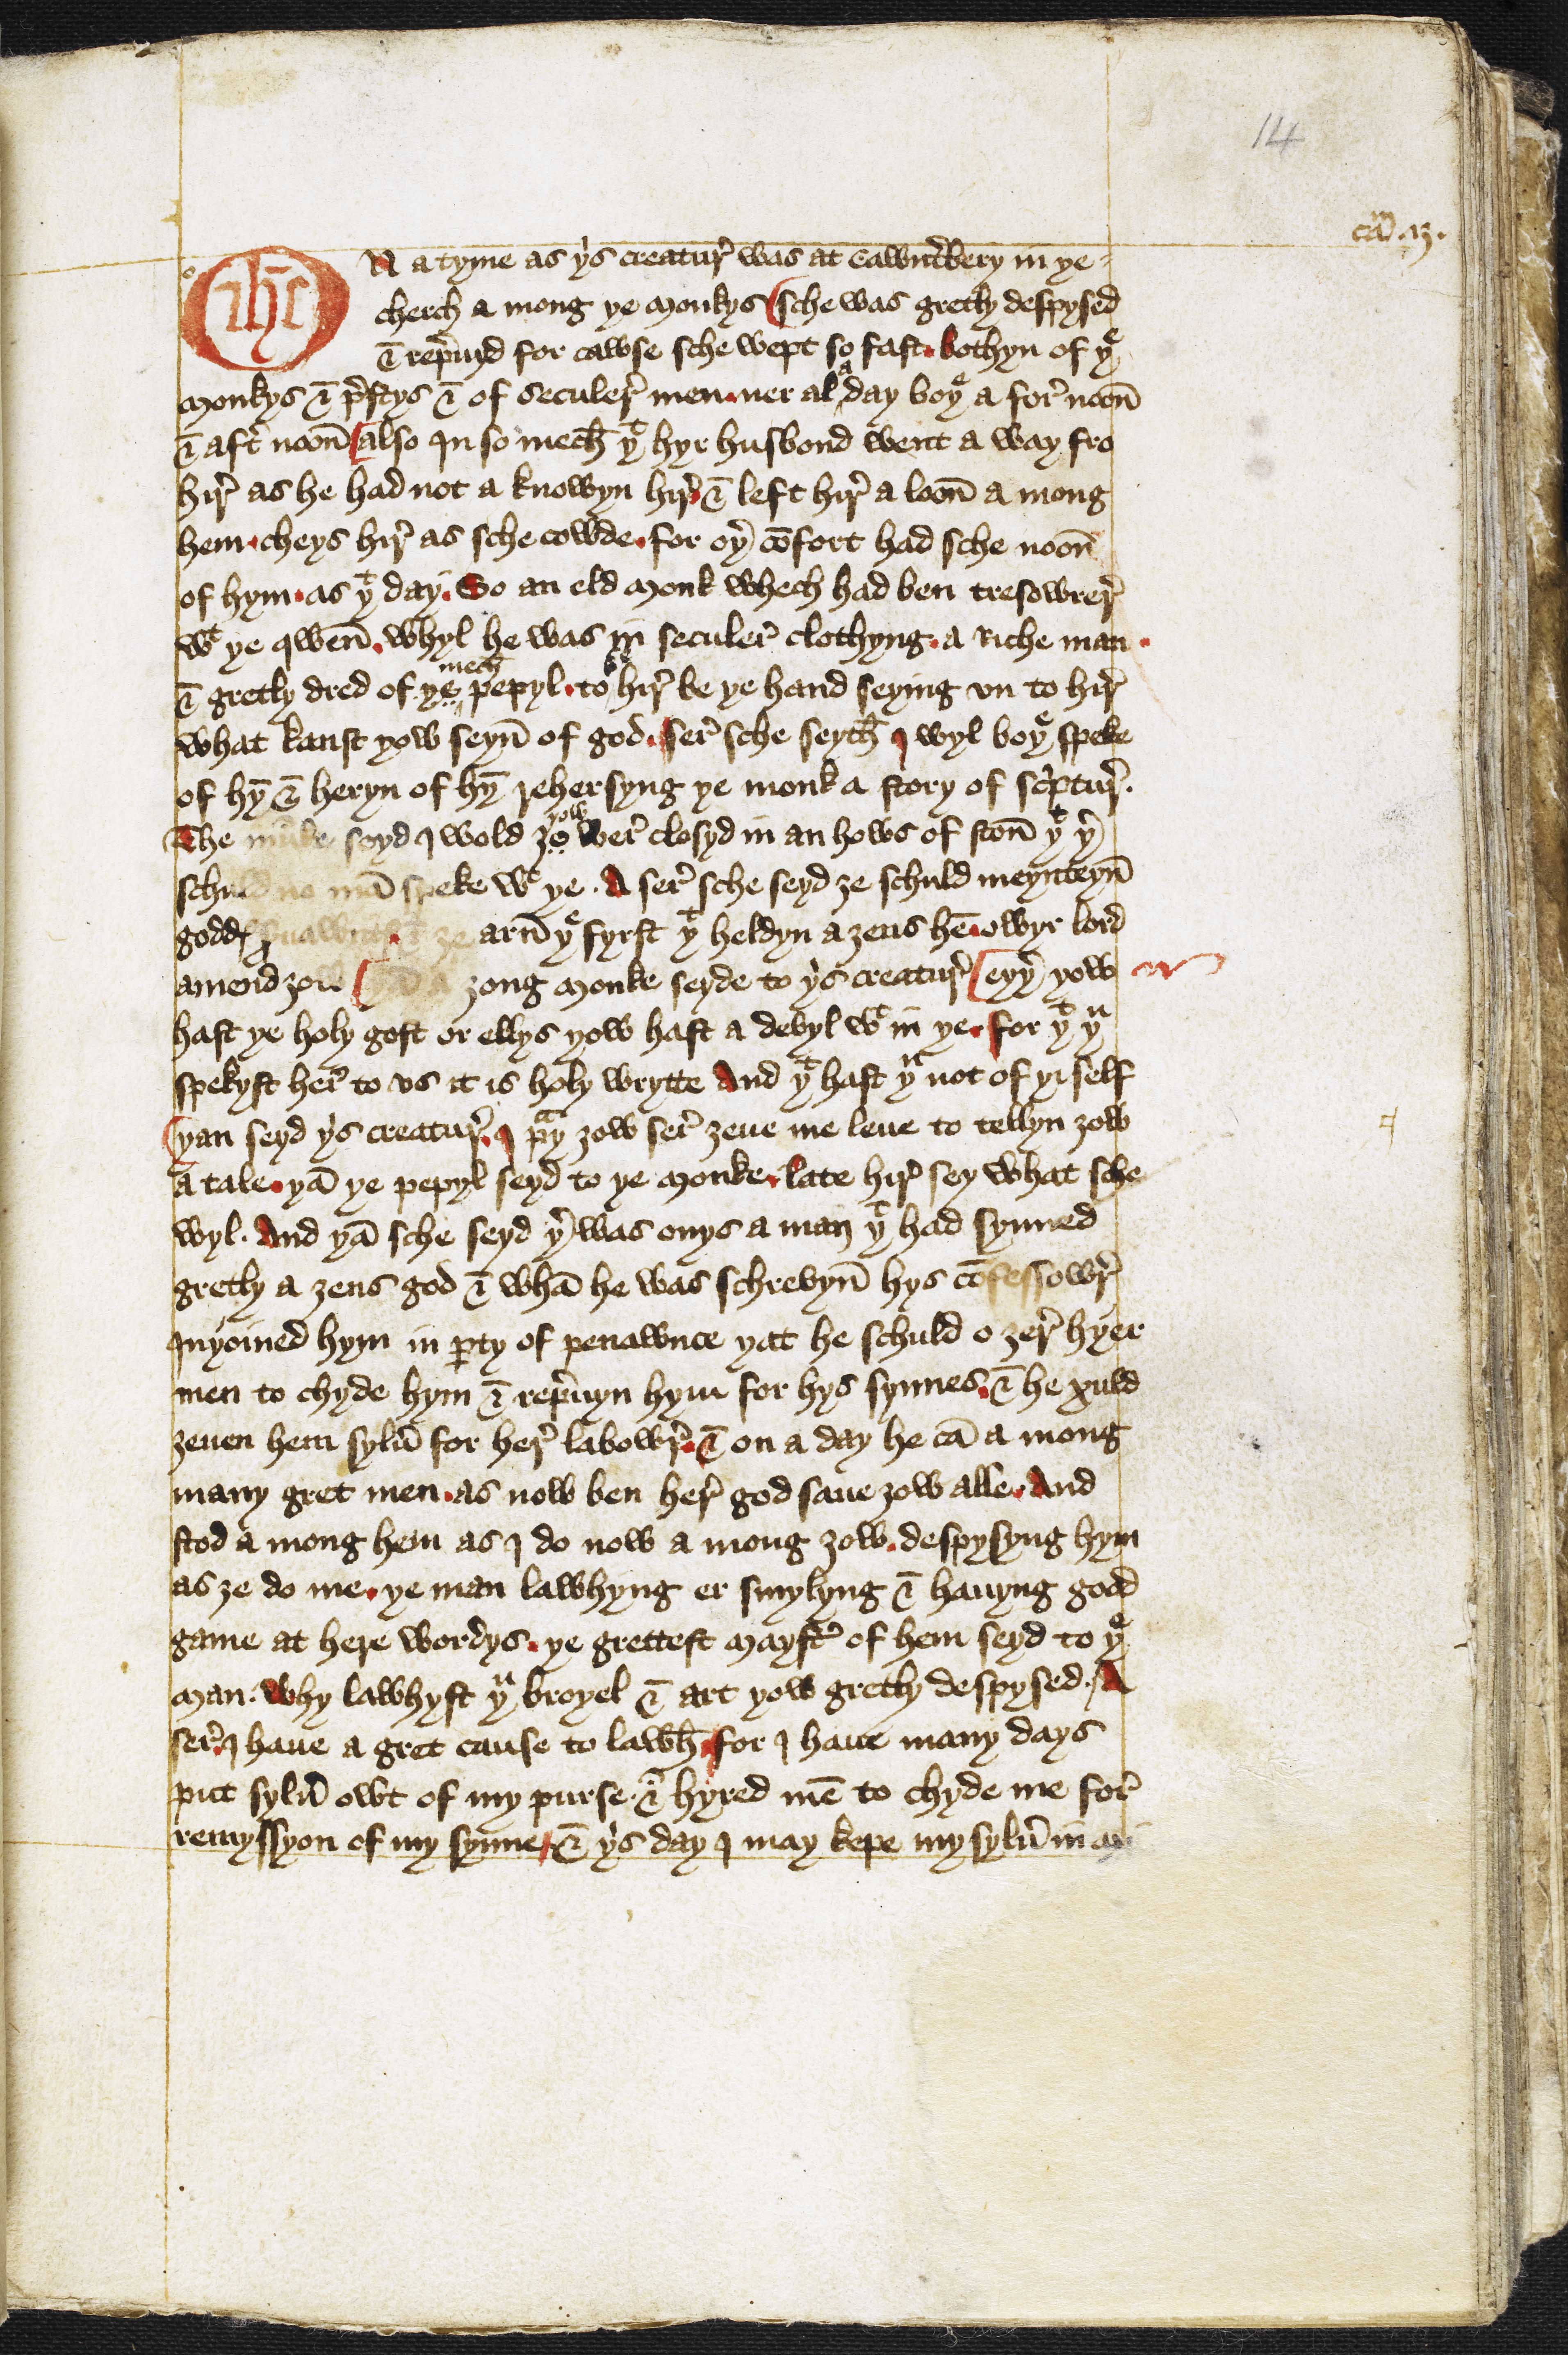 14
cam̄ .13.
ihc
N a tyme as yis creatur̉ was at Cawnt̉bery in ye
cherch a mong ye monkys sche was gretly despysed
& rep̉uyd for cawse sche wept so fast. bothyn of yͤ
monkys & p̉stys & of seculer̉ men. ner al a day boyͤ a for̉ noon̄
& aft̉ noon̄ also In so mech̄ yͭ hyr husbond went a way fro
hir̉ as he had not a knowyn hir̉ & left hir̉ a loon̄ a mong
hem. cheys hir̉ as sche cowde. for oyr̉ cōfort had sche noon̄
of hym. as yͭ day. So an eld monk whech had ben tresowrer̉
wͭ ye qwen̄. whyl he was in seculer̉ clothyng. a Riche man.
& gretly dred of ye mech̄ pepyl. to ke hir̉ be ye hand seying vn to hir̉
what kanst yow seyn̄ of god. ser̉ sche seyth̄ I wyl boyͤ speke
of hȳ & heryn of hȳ rehersyng ye monk a story of sc̉ptur̉.
The seyd I wold ze yow wer̉ closyd in an hows of ston̄ yͭ yr̉
schuld no mā speke wͭ ye. A ser̉ sche seyd ze schuld meynteyn̄
godd ze arn̄ yͤ fyrst yͭ heldyn a zens hē. owyr lord
amend zow zong monke seyde to yis creatur̉ eyyr̉ yow
hast ye holy gost or ellys yow hast a devyl wͭ in ye. for yͭ yͧ
spekyst her̉ to vs it is holy wrytte And yͭ hast yͧ not of yi self
yan seyd yis creatur̉. I pͣy zow ser̉ zeue me leue to tellyn zow
a tale. yā ye pepyl seyd to ye monke. late hir̉ sey what sche
wyl. And yā sche seyd yr̉ was onys a man yͭ had synned
gretly a zens god & whā he was schrevyn̄ hys cōfessowr̉
Inyoined hym in p̱ty of penawnce yat he schuld o zer̉ hyer
men to chyde hym & rep̉uyn hym for hys synnes. & he xuld
zeuen hem sylủ for her̉ labowr̉. & on a day he cā a mong
many gret men. as now ben her̉ god saue zow alle. And
stod a mong hem as I do now a mong zow. despysyng hym
as ze do me. ye man lawhyng er smylyng & hauyng good
game at here wordys. ye grettest mayst̉ of hem seyd to yͤ
man. why lawhyst yͧ broyel & art yow gretly despysed. A
ser̉ I haue a gret cause to lawh̄. for I haue many days
put sylủ owt of my purse. & hyred mē to chyde me for̉
remyssyon of my synne. & yis day I may kepe my sylủ in